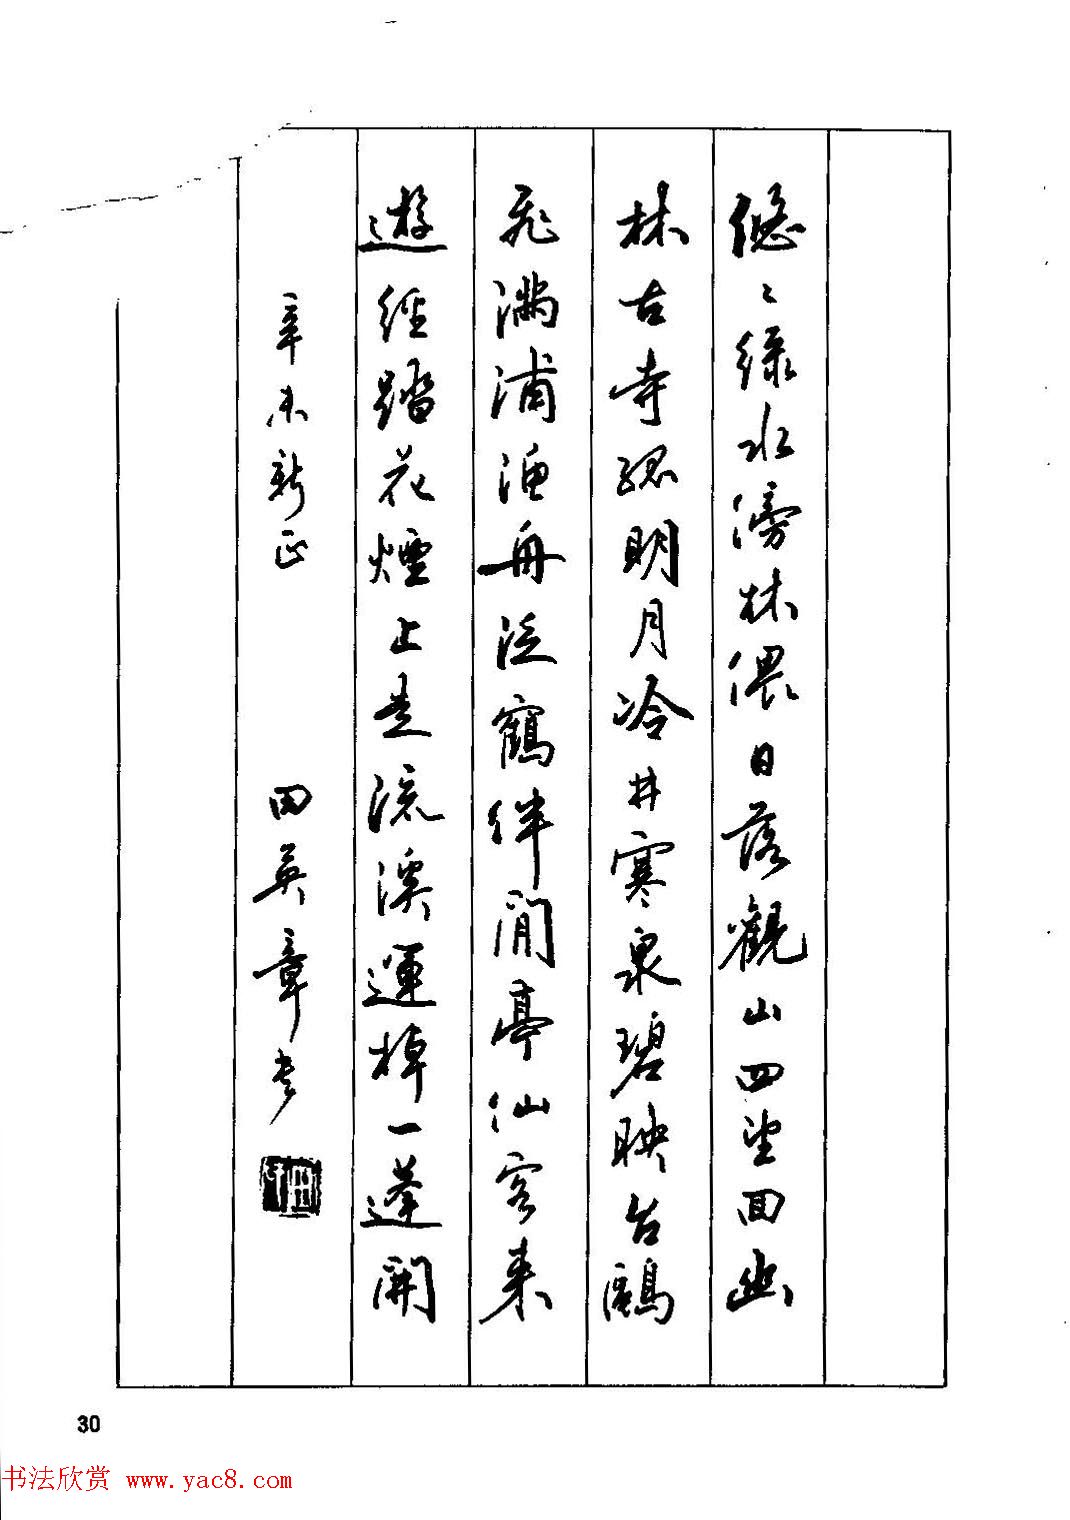 悠〻綠水傍林偎日落觀山四望回幽
林古寺孤明月冷井寒泉碧映台鷗
飛滿浦漁舟泛鶴伴閒亭仙客來
遊徑踏花煙上走流溪遠棹一蓬開
辛未新正 田英章书
30
书法欣赏 www.yac8.com